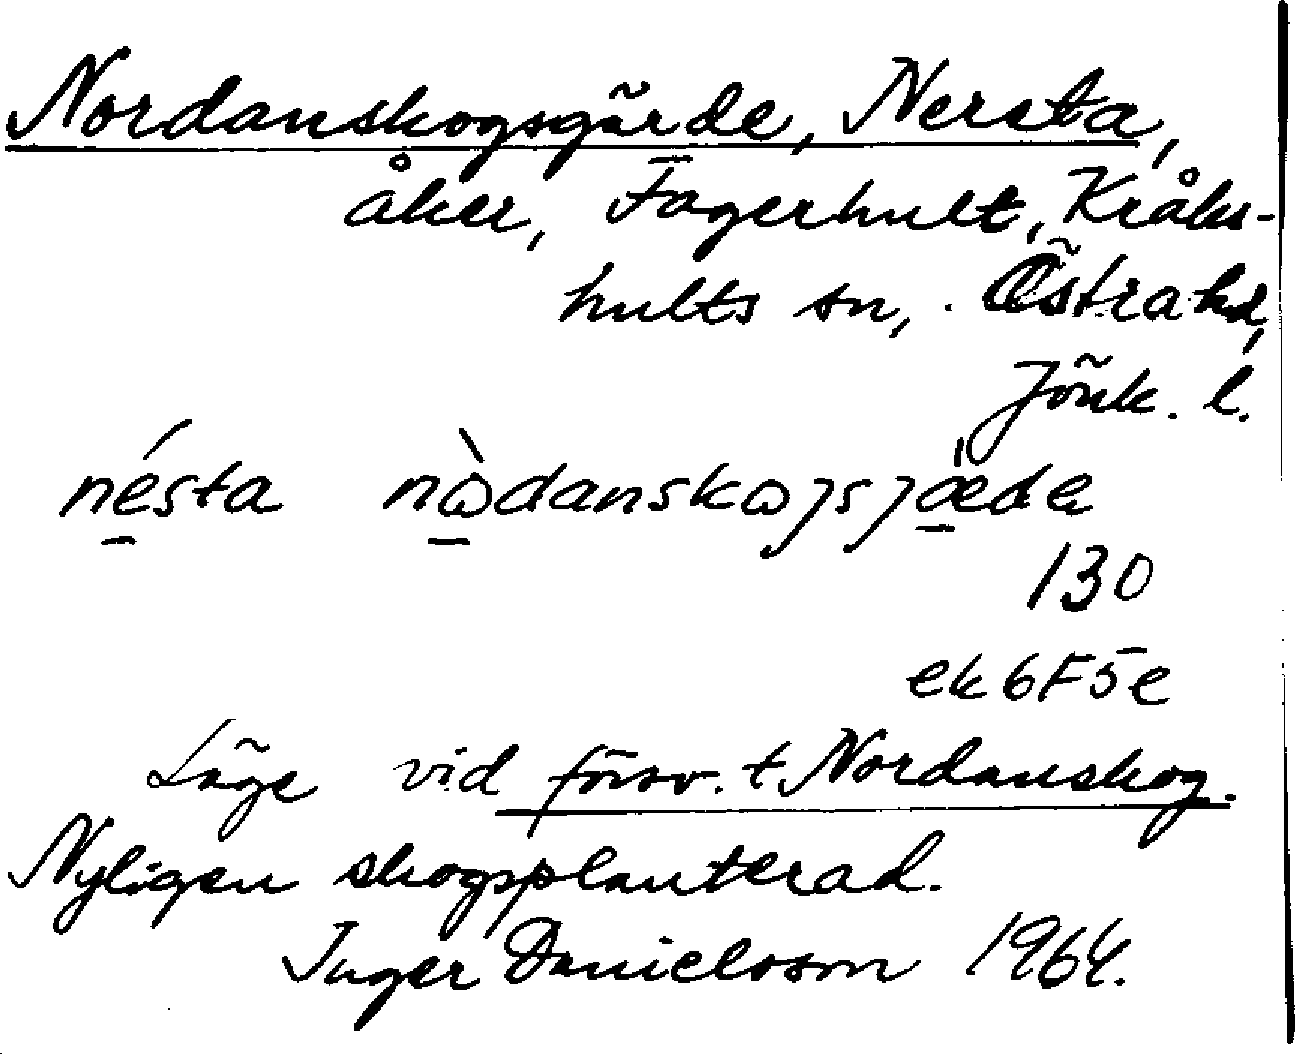 Nordanskogsgärde, Nersta,
åker, Fagerhult, Kråks-
hults sn, Östra hd,
Jönk. l.
nésta nɷ̀danskɷȷsȷæ̀da
130
ek 6F5e
Läge vid försv. t. Nordanskog.
Nyligen skogsplanterad.
Inger Danielsson 1964.